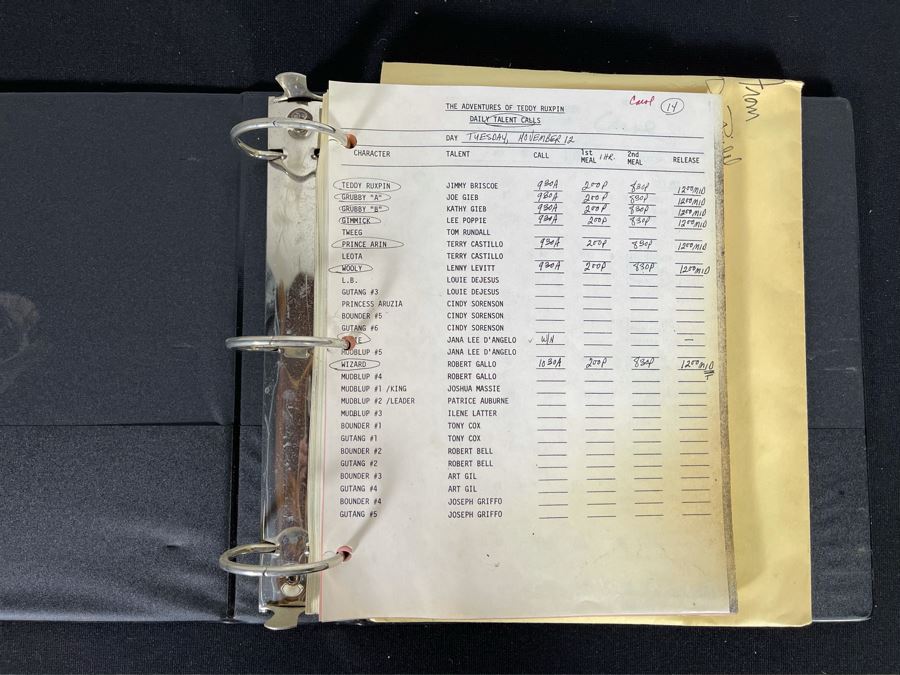 Carol 14
THE ADVENTURES OF TEDDY RUXPIN
DAILY TALENT CALLS
DAY TUESDAY, NOVEMBER 12
CHARACTER TALENT CALL 1st MEAL 1 HR. 2nd MEAL RELEASE
TEDDY RUXPIN JIMMY BRISCOE 930A 200P 830P 1200MID
GRUBBY "A" JOE GIEB 930A 200P 830P 1200MID
GRUBBY "B" KATHY GIEB 930A 200P 830P 1200MID
GIMMICK LEE POPPIE 930A 200P 830P 1200MID
TWEEG TOM RUNDALL
PRINCE ARIN TERRY CASTILLO 930A 200P 830P 1200MID
LEOTA TERRY CASTILLO
WOOLY LENNY LEVITT 930A 200P 830P 1200MID
L.B. LOUIE DEJESUS
GUTANG #3 LOUIE DEJESUS
PRINCESS ARUZIA CINDY SORENSON
BOUNDER #5 CINDY SORENSON
GUTANG #6 CINDY SORENSON
JANA LEE D'ANGELO W/N —
MUDBLUP #5 JANA LEE D'ANGELO
WIZARD ROBERT GALLO 1030A 200P 830P 1200MID
MUDBLUP #4 ROBERT GALLO
MUDBLUP #1 /KING JOSHUA MASSIE
MUDBLUP #2 /LEADER PATRICE AUBURNE
MUDBLUP #3 ILENE LATTER
BOUNDER #1 TONY COX
GUTANG #1 TONY COX
BOUNDER #2 ROBERT BELL
GUTANG #2 ROBERT BELL
BOUNDER #3 ART GIL
GUTANG #4 ART GIL
BOUNDER #4 JOSEPH GRIFFO
GUTANG #5 JOSEPH GRIFFO
From